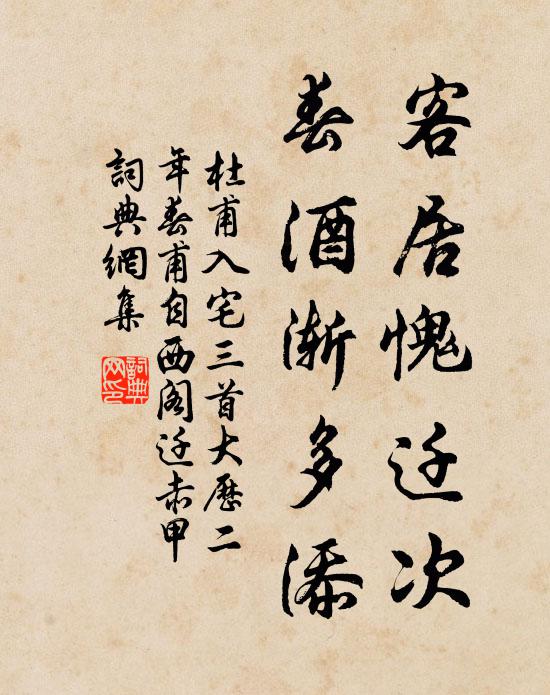 客居愧迁次
春酒渐多添
杜甫入宅三首大历二
年春甫自西阁迁赤甲
詞典網集
詞典
网印